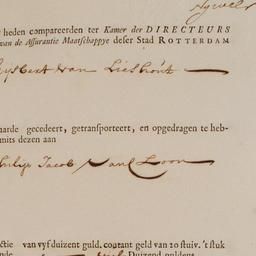 heden compareerden ter Kamer der DIRECTEURS
van de Assurantie Maatschappye deser Stad ROTTERDAM
Gysbert van Lieshout
aarde gecedeert, getransporteert, en opgedragen te heb-
mits dezen aan
Philip Jacob van Loon
ctie van vyf duizent guld. coutant geld van 10 stuiv. 't stuk
ende Duizend guldens